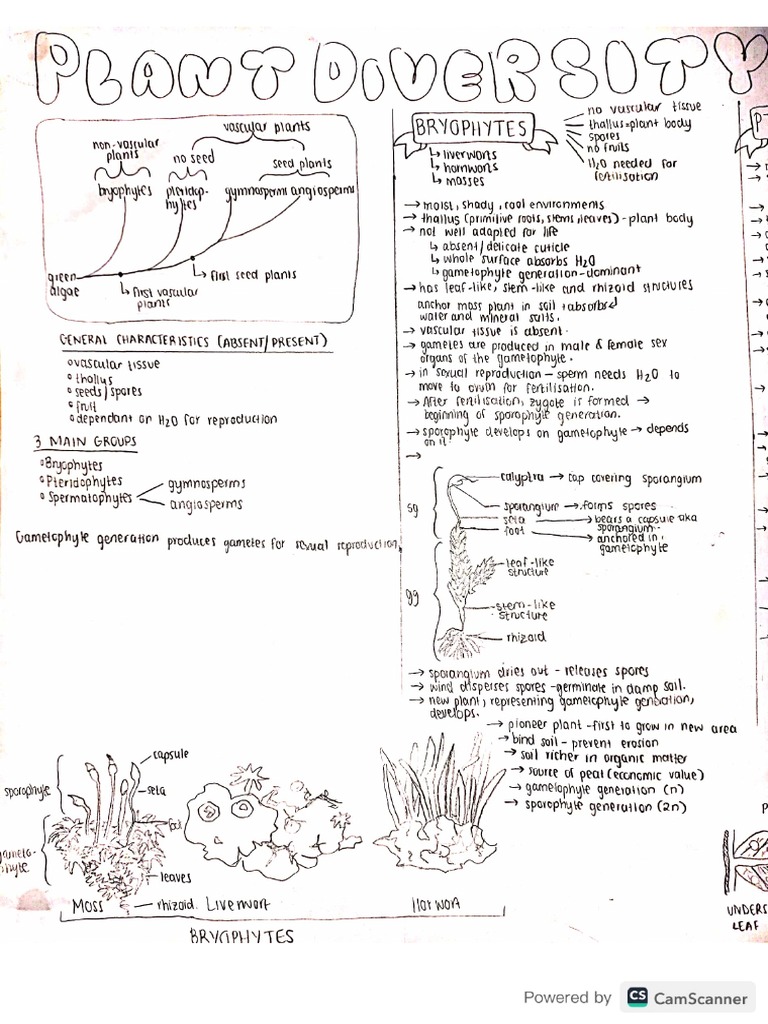 PLANT DIVERSITY
vascular plants
non-vascular
plants
no seed
seed plants
bryophytes
pteridop-
hytes
gymnosperms angiosperms
green
algae
↳ first seed plants
↳ first vascular
plants
GENERAL CHARACTERISTICS (ABSENT/PRESENT)
° vascular tissue
° thallus
° seeds/spores
° fruit
° dependant on H2O for reproduction
3 MAIN GROUPS
° Bryophytes
° Pteridophytes
° Spermatophytes
gymnosperms
angiosperms
Gametophyte generation produces gametes for sexual reproduction.
BRYOPHYTES
↳ liverworts
↳ hornworts
↳ mosses
no vascular tissue
thallus=plant body
spores
no fruits
H2O needed for
fertilisation
→ moist, shady, cool environments
→ thallus (primitive roots, stems, leaves) - plant body
→ not well adapted for life
↳ absent/delicate cuticle
↳ whole surface absorbs H2O
↳ gametophyte generation-dominant
→ has leaf-like, stem-like and rhizoid structures
anchor moss plant in soil + absorbed
water and mineral salts.
→ vascular tissue is absent.
→ gametes are produced in male & female sex
organs of the gametophyte.
→ in sexual reproduction - sperm needs H2O to
move to ovum for fertilisation.
→ After fertilisation, zygote is formed →
beginning of sporophyte generation.
→ sporophyte develops on gametophyte → depends
on it.
→
sg
calyptra → cap covering sporangium
sporangium → forms spores
seta → bears a capsule aka
sporangium.
foot → anchored in
gametophyte
gg
leaf-like
structure
stem-like
structure
rhizoid
→ sporangium dries out - releases spores
→ wind disperses spores - germinate in damp soil.
→ new plant, representing gametophyte genration,
develops.
→ pioneer plant - first to grow in new area
→ bind soil - prevent erosion
→ soil richer in organic matter
→ source of peat (economic value)
→ gametophyte generation (n)
→ sporophyte generation (2n)
sporophyte
capsule
seta
foot
gameto-
phyte
leaves
rhizoid
Moss
Liverwort
Hornwort
BRYOPHYTES
UNDERS
LEAF
Powered by CS CamScanner